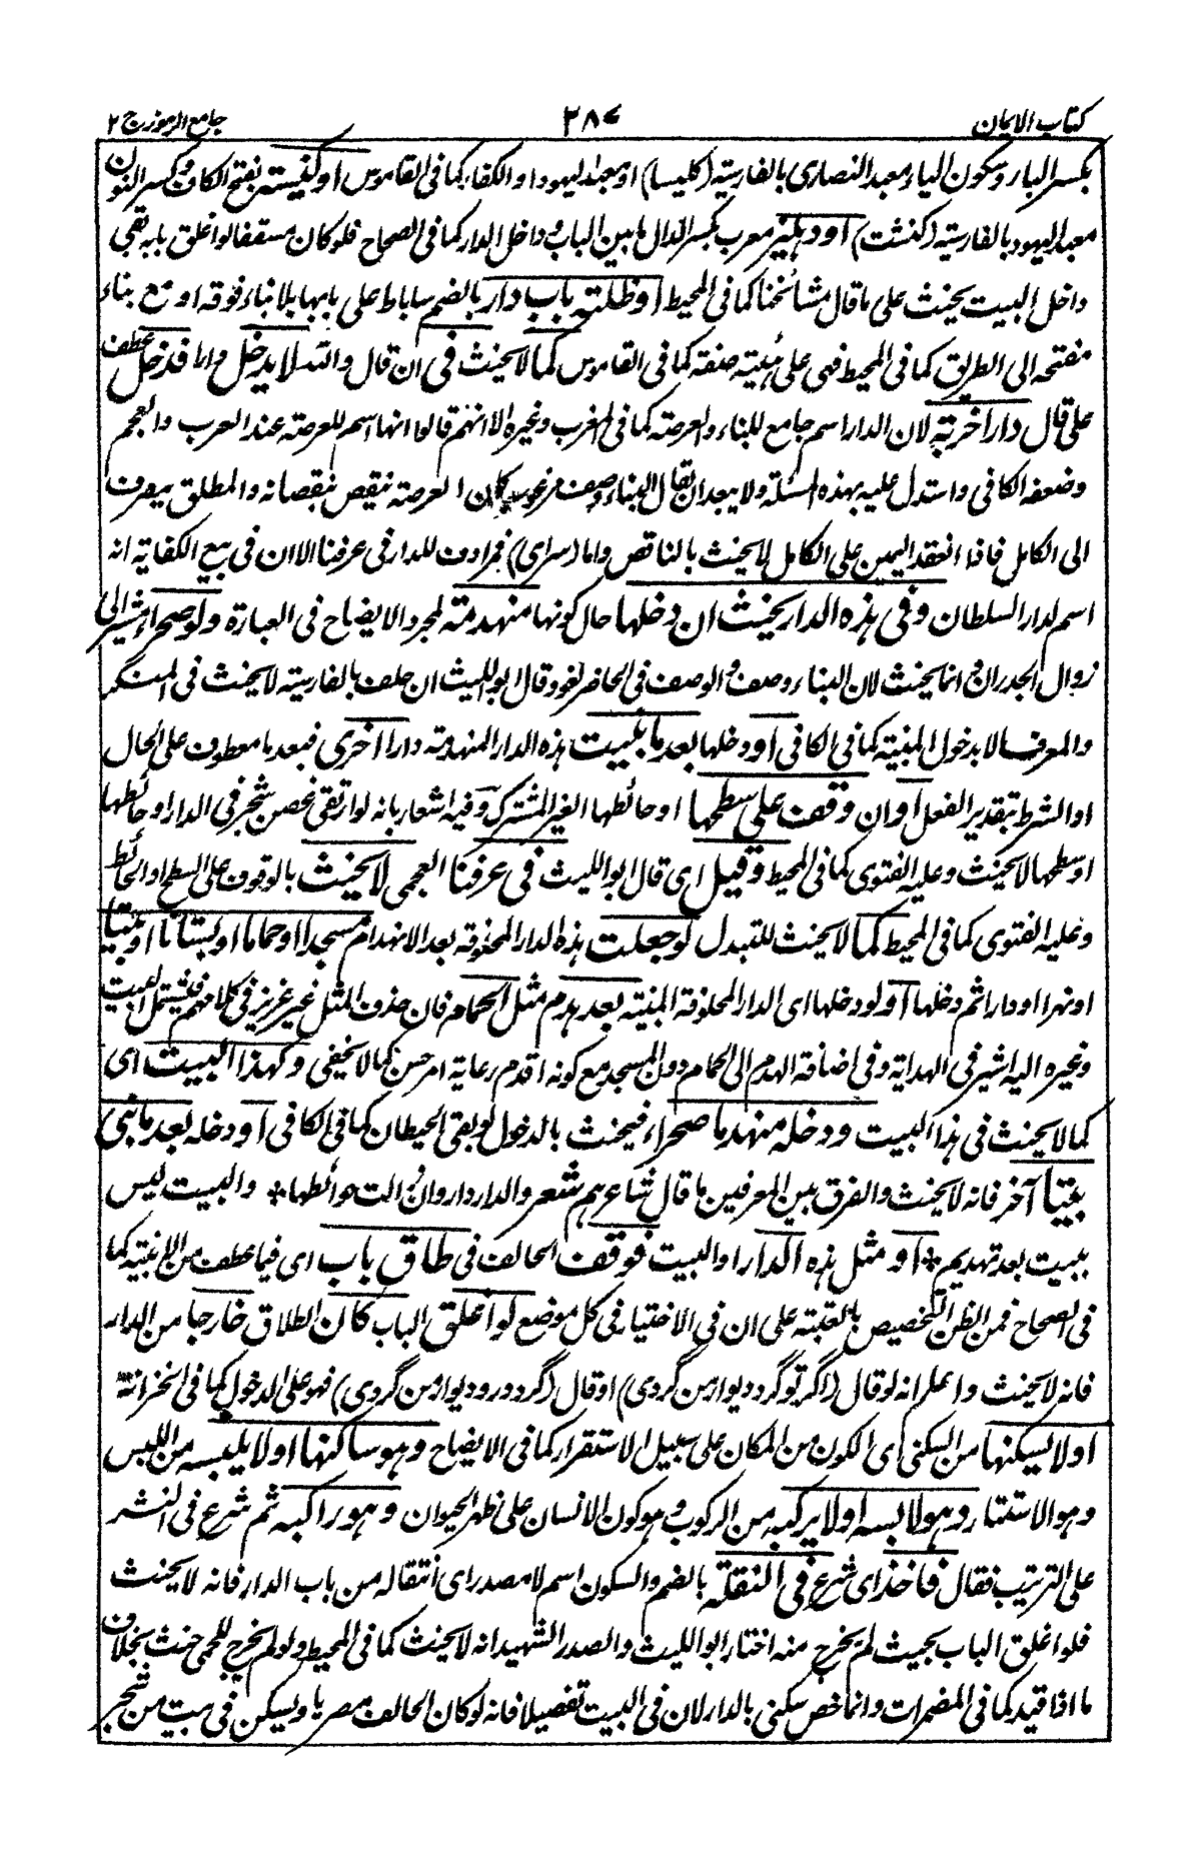 كتاب الايمان
٣٨٧
جامع الرموز ج ٢
بكسر الباء وسكون الياء معبد النصارى بالفارسية (كليسا) او معبد اليهود او الكفار كما فى القاموس او كنيسة بفتح الكاف وكسر النون
معبد اليهود بالفارسية (كنشت) او دهليز معرب بكسر الدال ما بين الباب وداخل الدار كما فى الصحاح فلو كان مسقفا لو اغلق بابه بقى
داخل البيت يحنث على ما قال مشائخنا كما فى المحيط او ظلة باب دار بالضم ساباط على بابها بلا بناء فوقه او مع بناء
مفتحه الى الطريق كما فى المحيط فهى على هيئة صفة كما فى القاموس كما لا يحنث فى ان قال والله لا يدخل دارا فدخل عطف
على قال دارا خربة لان الدار اسم جامع للبناء والعرصة كما فى المغرب وغيره الا انهم قالوا انها اسم للعرصة عند العرب والعجم
وضعفه الكافى واستدل عليه بهذه المسئلة ولا يبعد ان يقال البناء وصف مرغوب العرصة ينقص بنقصانه والمطلق يصرف
الى الكامل فاذا انعقد اليمين على الكامل لا يحنث بالناقص واما (سراى) فمرادف للدار فى عرفنا الا ان فى بيع الكفاية انه
اسم لدار السلطان وفى هذه الدار يحنث ان دخلها حال كونها منهدمة لمجرد الايضاح فى العبارة ولو صحراء يشير الى
زوال الجدران وانما يحنث لان البناء وصف والوصف فى الحاضر لغو وقال ابو الليث ان حلف بالفارسية لا يحنث فى المنكر
والمعرف الا بدخول المبنية كما فى الكافى او دخلها بعد ما بنيت هذه الدار المنهدمة دارا اخرى فبعد ما معطوف على الحال
او الشرط بتقدير الفعل او ان وقف على سطحها او حائطها الغير المشترك وفيه اشعار بانه لو ارتقى غصن شجر فى الدار او حائطها
او سطحها لا يحنث وعليه الفتوى كما فى المحيط وقيل اى قال ابو الليث فى عرفنا العجمى لا يحنث بالوقوف على السطح او الحائط
وعليه الفتوى كما فى المحيط كما لا يحنث للتبدل لو جعلت هذه الدار المحلوفة بعد الانهدام مسجدا او حماما او بستانا او بيتا
او نهرا او دارا ثم دخلها او لو دخلها اى الدار المحلوفة المبنية بعد هدم مثل الحمام فان حذف المثل غير عزيز فى كلامهم فيشتمل البيت
وغيره اليه اشير فى الهداية وفى اضافة الهدم الى الحمام دون المسجد مع كونه اقدم رعاية امر حسن كما لا يخفى وكهذا البيت اى
كما لا يحنث فى هذا البيت ودخله منهدما صحراء فيحنث بالدخول لو بقى الحيطان كما فى الكافى او دخله بعد ما بنى
بيتا آخر فانه لا يحنث والفرق بين المعرفين ما قال شاعرهم شعر والدار دار وان زالت حوائطها * والبيت ليس
ببيت بعد تهديم * او مثل هذه الدار او البيت فوقف الحالف فى طاق باب اى فيما عطف من الابنية كما
فى الصحاح فمن الظن التخصيص بالعتبة على ان فى الاختيار فى كل موضع لو اغلق الباب كان الطلاق خارجا من الدار
فانه لا يحنث واعلم انه لو قال (اگر تو گرد ديوار من گردى) او قال (گرد در و ديوار من گردى) فهو على الدخول كما فى الخزانة
او لا يسكنها من السكنى اى الكون من المكان على سبيل الاستقرار كما فى الايضاح وهو ساكنها او لا يلبسه من اللبس
وهو الاستتار وهو لابسه او لا يركبه من الركوب وهو كون الانسان على ظهر الحيوان وهو راكبه ثم شرع فى النشر
على الترتيب فقال فاخذ اى شرع فى النقلة بالضم والسكون اسم لا مصدر اى انتقاله من باب الدار فانه لا يحنث
فلو اغلق الباب بحيث لم يخرج منه اختار ابو الليث والصدر الشهيد انه لا يحنث كما فى المحيط ولو لم يخرج للحمى حنث بخلاف
ما اذا قيد كما فى المضمرات وانما خص سكنى بالدار لان فى البيت تفصيلا فانه لو كان الحالف مصريا ويسكن فى بيت من شجر